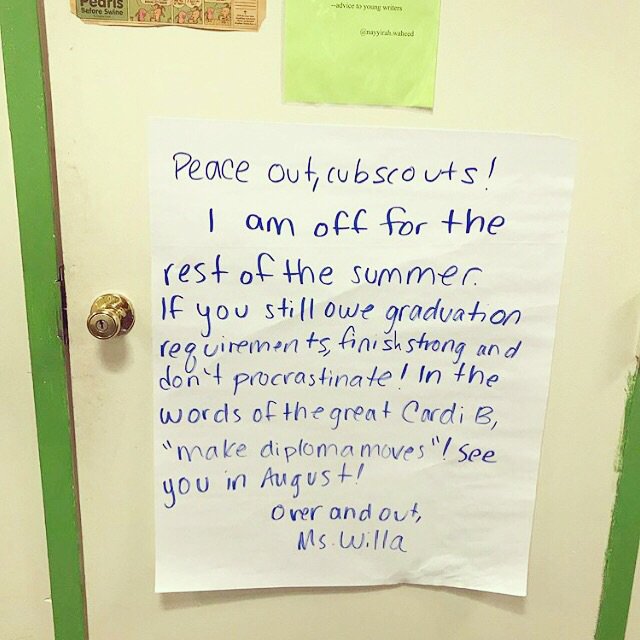 Pearls
Before Swine
--advice to young writers
@nayyirah.waheed
Peace out, cubscouts!
I am off for the
rest of the summer.
If you still owe graduation
requirements, finish strong and
don't procrastinate! In the
words of the great Cardi B,
"make diploma moves"! See
you in August!
Over and out,
Ms. Willa